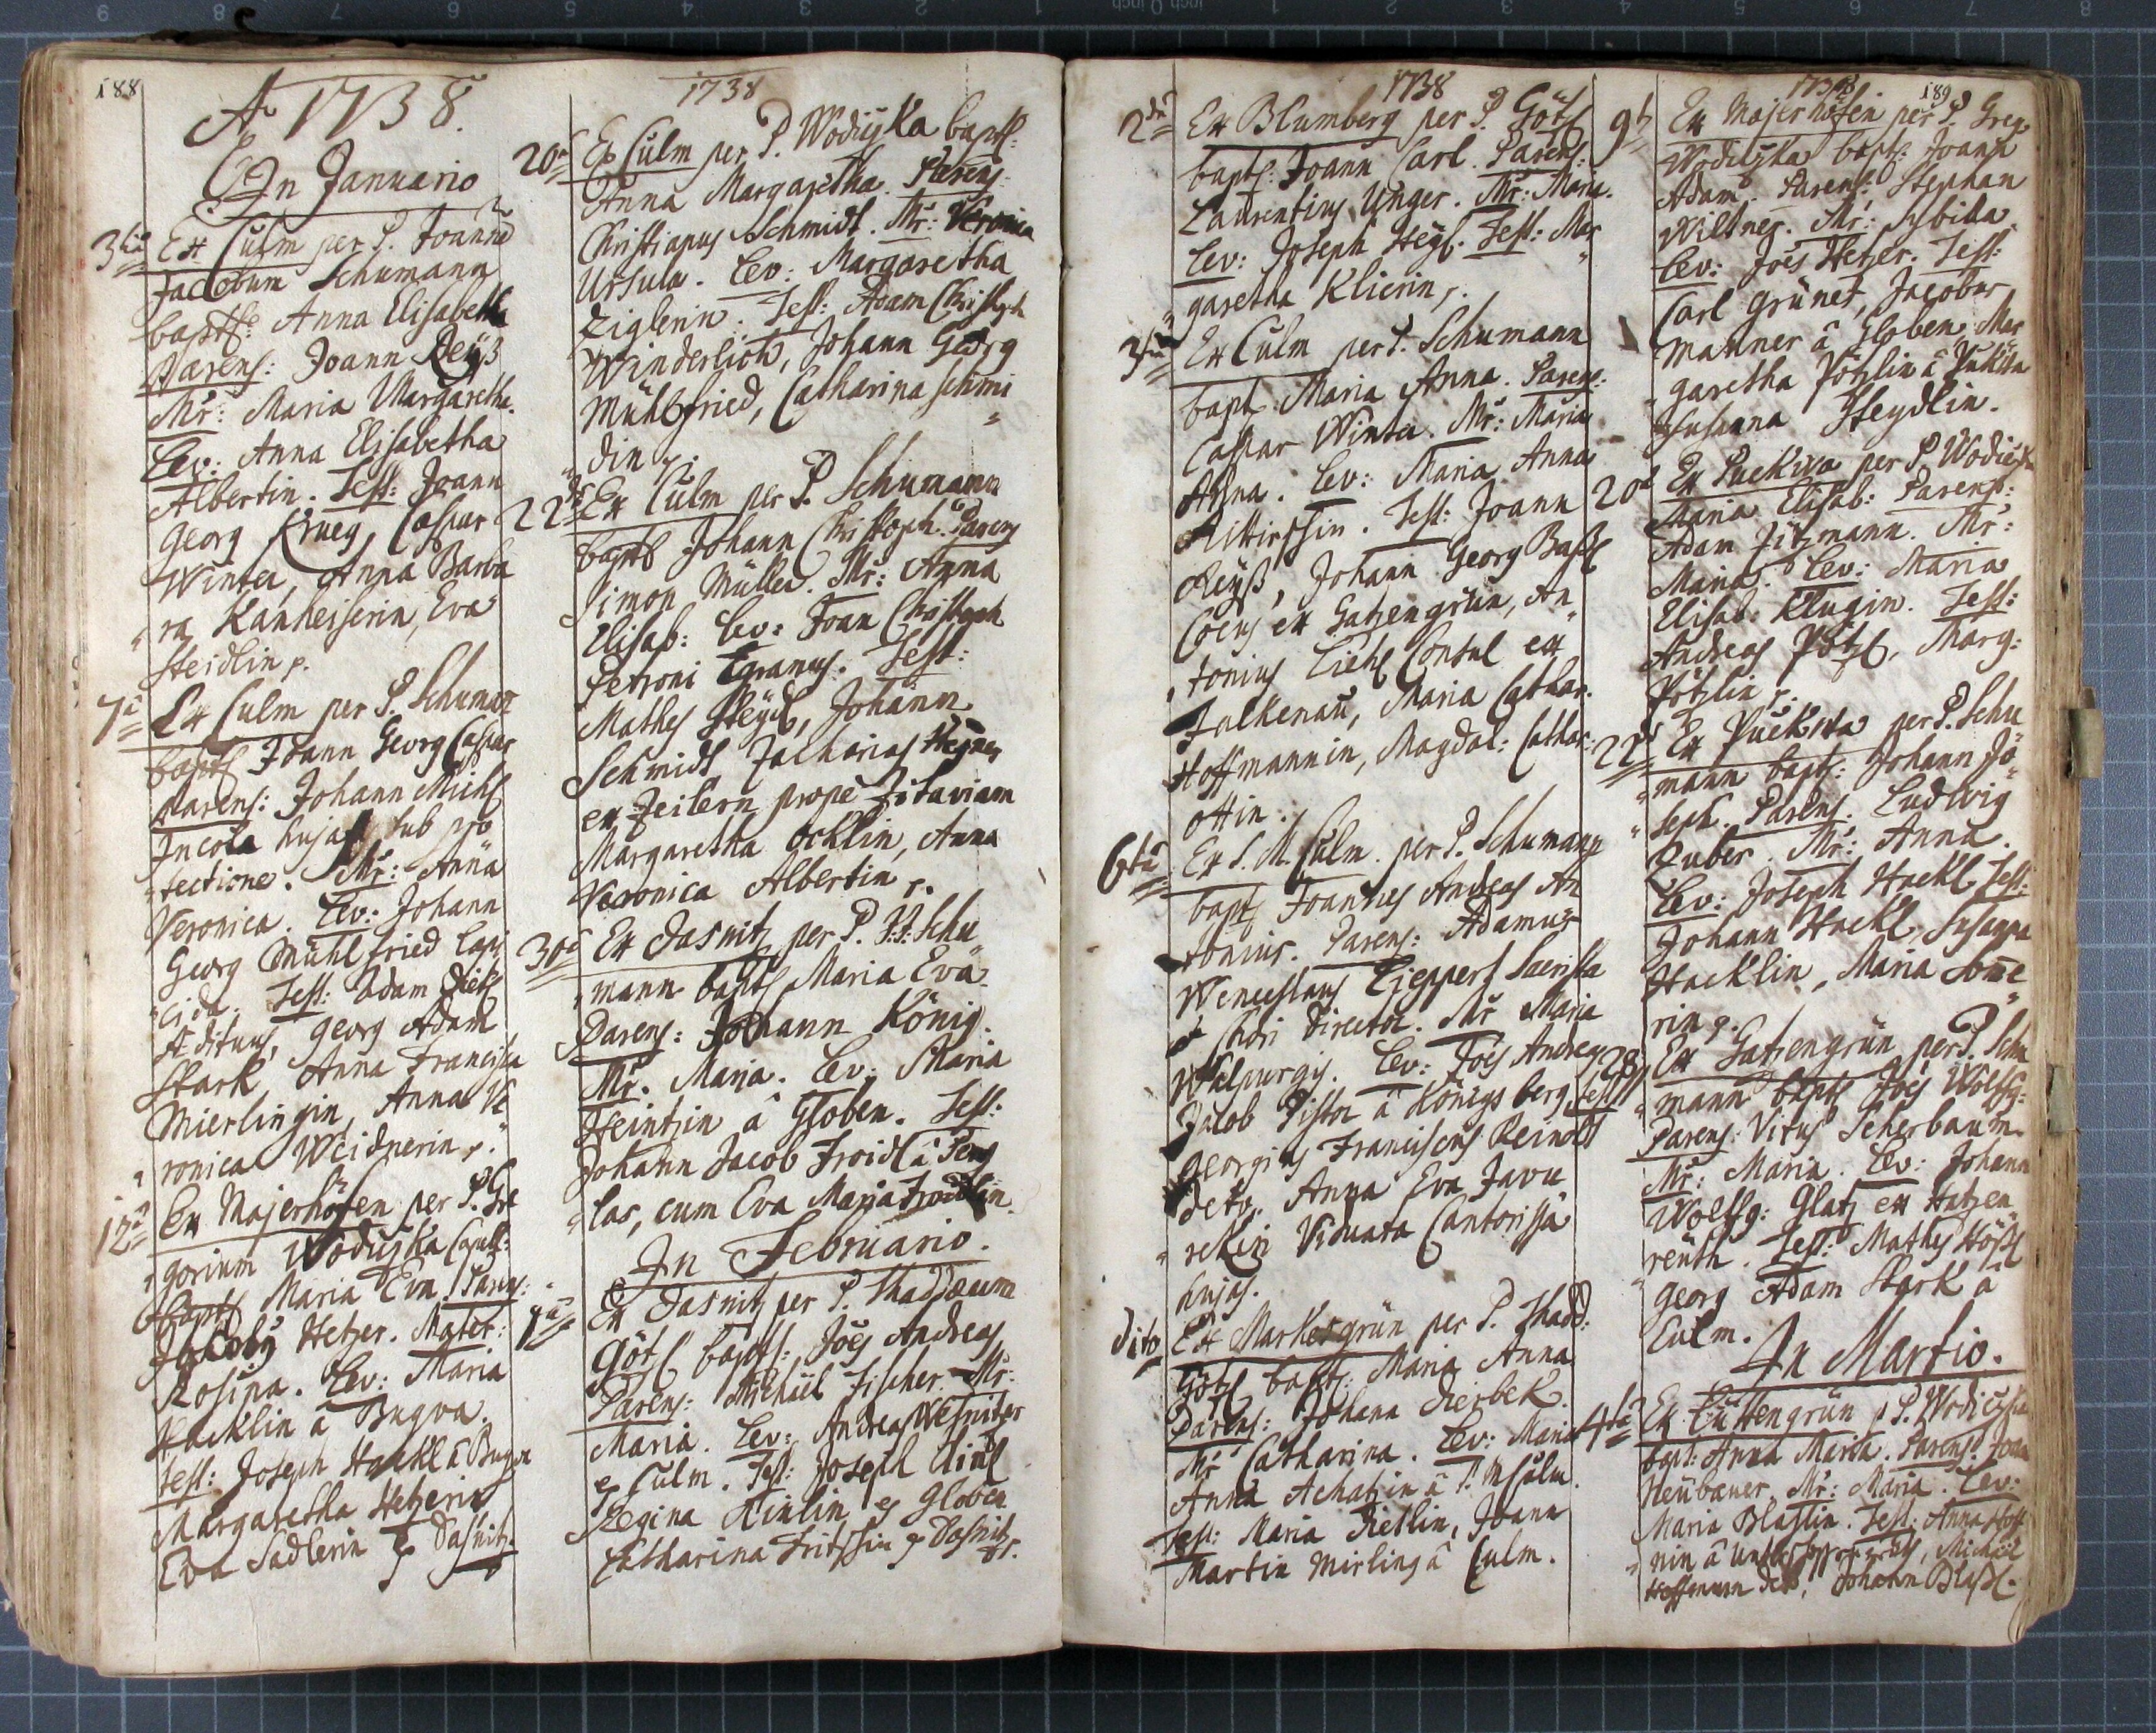 188
Ao 1738.
In Januario
3tia Ex Culm per P. Joanne
Jacobum Schumann
bapts: Anna Elisabetha
Parens: Joann Reyß
Mr: Maria Margaretha.
Lev: Anna Elisabetha
Albertin. Test: Joann
Georg Krueg, Caspar
Winter, Anna Barba
ra Kanheiserin, Eva
Steidlin
7a Ex Culm per P. Schuman
bapts Joann Georg Caspar
Parens: Johann Michl
Incola hujas sub pro
tectione. Mr: Anna
Veronica. Lev: Johann
Georg Mühlfried Lapi
cida. Test: Adam Dietl
Ædituus, Georg Adam
Stark, Anna Francisca
Mierlingin, Anna Ve
ronica Weidnerin
12a Ex Majerhöfen per P. Gre
gorium Wodiczka Capell:
bapts Maria Eva. Parens:
Jacobus Hetzer. Mater:
Rosina. Lev: Maria
Hacklin à Bugva.
Test: Joseph Hackl à Bugva
Margaretha Hetzerin
Eva Sadlerin Dasnitz.
1738
20a Ex Culm per P. Wodiczka bapts:
Anna Margaretha. Parens:
Christianus Schmidt. Mr: Veronica
Ursula. Lev: Margaretha
Ziglerin. Test: Adam Christoph
Winderlich, Johann Georg
Mühlfried, Catharina Schmi
din
22a Ex Culm per P. Schumann
bapts Johann Christoph. Parens
Simon Müller. Mr: Anna
Elisab: Lev: Joan Christoph
Petroni Egranus. Test:
Mathes Steydl, Johann
Schmidt Zacharias Hegner
ex Zeilern prope Zitaviam
Margaretha Ocklin, Anna
Veronica Albertin
30a Ex Dasnitz per P. J: J: Schu
mann bapts Maria Eva.
Parens: Johann König.
Mr. Maria. Lev: Maria
Heintzin à Globen. Test:
Johann Jacob Froidl à
las, cum Eva Maria Froidlin.
In Februario.
1a Ex Dasnitz per P. Thaddæum
Götzl bapts: Joes Andreas
Parens: Michäel Fischer. Mr:
Maria. Lev: Andreas
Culm. Test: Joseph
Regina Globen
Catharina Fritschin Dasnitz
1738
2da Ex Blumberg per P. Götzl
bapts: Joann Carl. Parens:
Laurentius Unger. Mr: Maria.
Lev: Joseph Heyl. Test: Mar
garetha Klierin
3tia Ex Culm per P. Schumann
bapt Maria Anna. Parens:
Caspar Winter. Mr: Maria
Anna. Lev: Maria Anna
Test: Joann
Reyß, Johann Georg Baßl
ex Gatzengrün, An
tonius Consul ex
Falkenau, Maria Cathar.
Hoffmannin, Magdal: Cathar:
ottin.
6ta Ex S. M. Culm per P. Schumann
bapts Joannes Andreas An
tonius. Parens: Adamus
Wenceslaus Tzeppert Sacrista
et Chori Director. Mr Maria
Walpurgis. Lev: Joes Andreas
Jacob Pistor à Königsberg Test
Georgius Franciscus Reinolt
deto, Anna Eva Javu
rekin Viduata Cantorissa
hujas.
dito Ex Markesgrün per P. Thadd:
Götzl bapts: Maria Anna
Parens: Johann Dierbek.
Mr Catharina. Lev: Maria
Anna Achatzin à S: M Culm.
Test: Maria Dietlin, Joann
Martin Mirling à Culm.
1738 189
9t Ex Majerhöfen per P. Greg.
Wodiczka bapt: Joann
Adam. Parens: Stephan
Wiltner. Mr: Sybilla
Lev: Joes Hetzer. Test:
Carl Grüner, Jacobus
Manner à Globen, Mar
garetha Pötzlin à Pukwa
Susanna Steydlin.
20a Ex Puckwa per P Wodiczka
Maria Elisab: Parens:
Adam Zitzmann. Mr:
Maria. Lev: Maria
Elisab. Klugin. Test:
Andreas Pötzl, Marg:
Pötzlin
22a Ex Puckwa per P. Schu
mann bapts: Johann Jo
seph. Parens. Ludwig
Zuber. Mr: Anna.
Lev: Joseph Hackl Test:
Johann Hackl, Susanna
Hacklin, Maria Some
rin
28 Ex Gatzengrün per P. Schu
mann bapts Joes Wolffg:
Parens: Vitus Scherbaum
Mr: Maria. Lev: Johann
Wolffg: Glatz ex Hatzen
reuth. Test: Mathes Hößl
Georg Adam Stark à
Culm.
In Martio.
4ta Ex Littengrün P. Wodiczka
bapt: Anna Maria. Parens: Joan
Neubauer. Mr: Maria. Lev:
Maria Blaslin. Test: Anna Hoff
nin à Michäel
Hoffmann deto, Johann Blaßl.